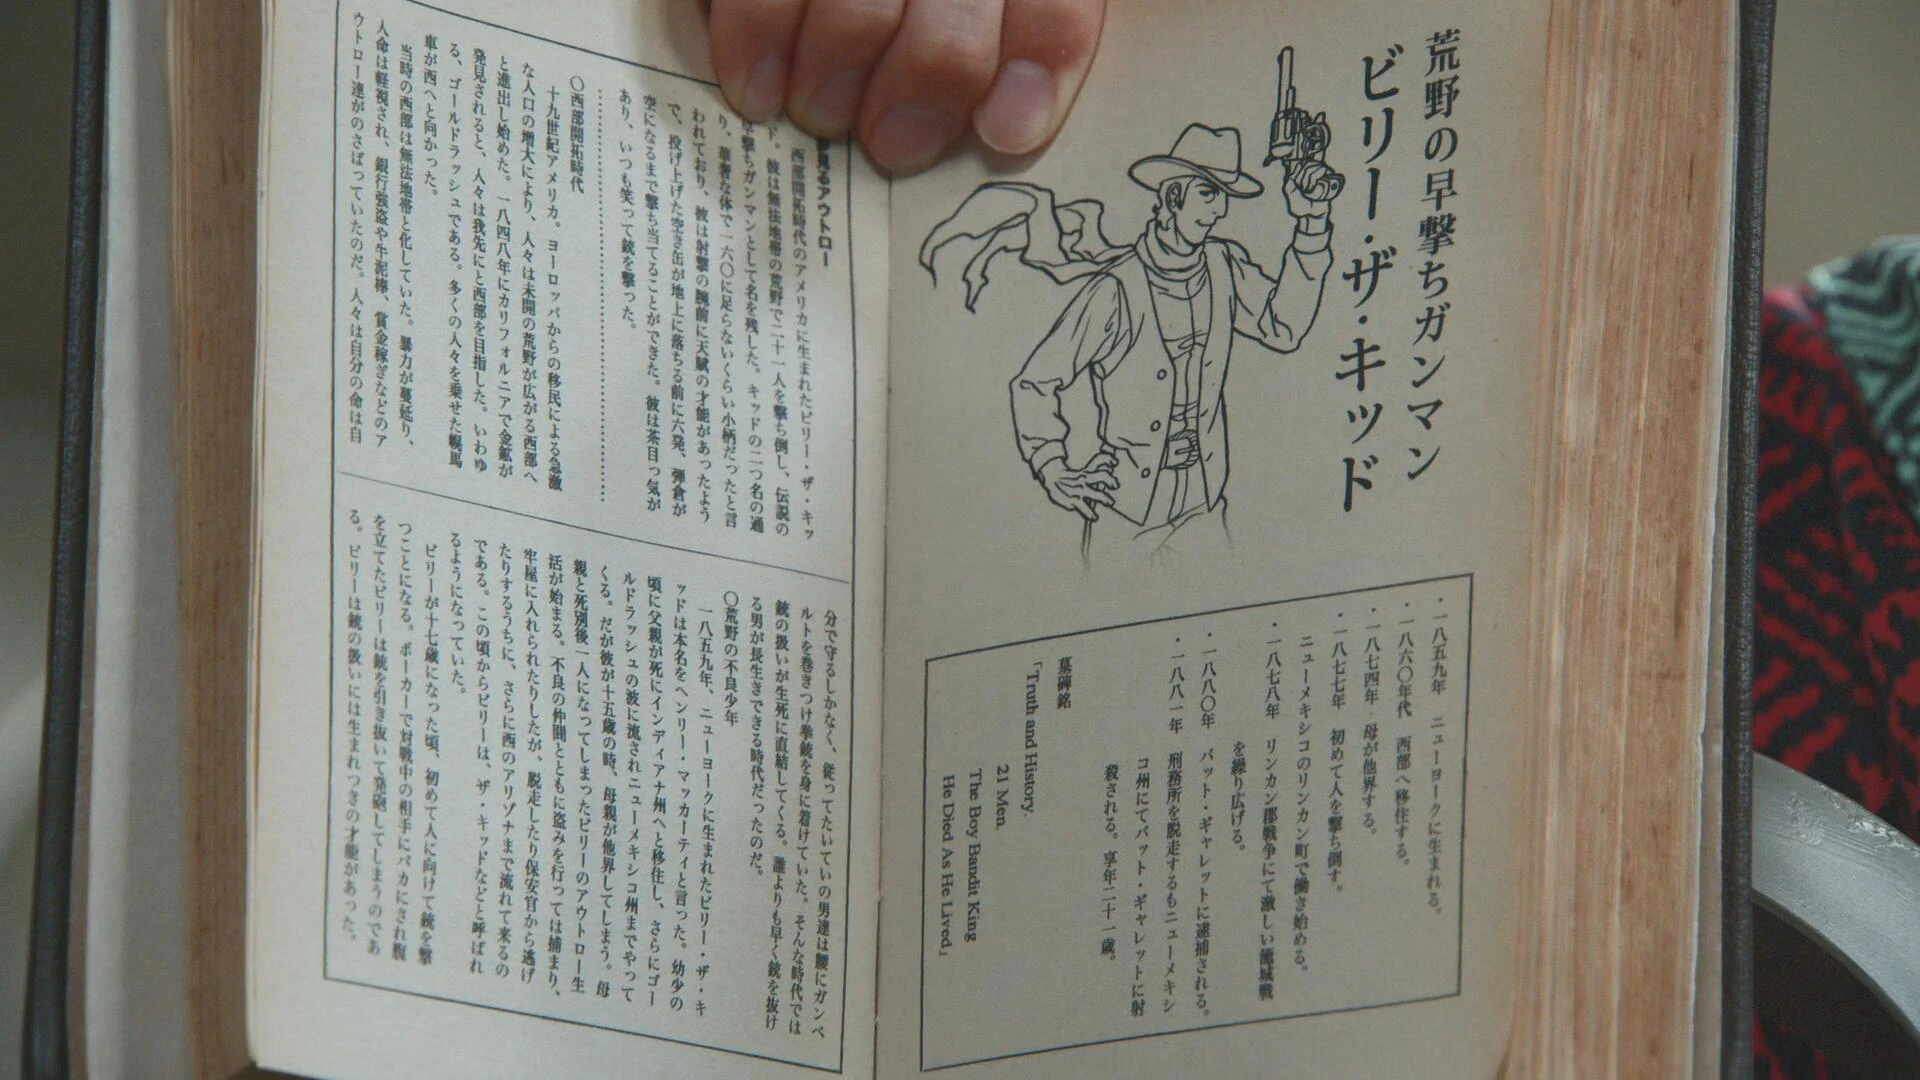 荒野の早撃ちガンマン
ビリー・ザ・キッド
・一八五九年 ニューヨークに生まれる。
・一八六〇年代 西部へ移住する。
・一八七四年 母が他界する。
・一八七七年 初めて人を撃ち倒す。
ニューメキシコのリンカン町で働き始める。
・一八七八年 リンカン郡戦争にて激しい籠城戦
を繰り広げる。
・一八八〇年 パット・ギャレットに逮捕される。
・一八八一年 刑務所を脱走するもニューメキシ
コ州にてパット・ギャレットに射
殺される。享年二十一歳。
墓碑銘
「Truth and History.
21 Men.
The Boy Bandit King
He Died As He Lived」
見るアウトロー
西部開拓時代のアメリカに生まれたビリー・ザ・キッ
ド。彼は無法地帯の荒野で二十一人を撃ち倒し、伝説の
早撃ちガンマンとして名を残した。キッドの二つ名の通
り、華奢な体で一六〇に足らないくらい小柄だったと言
われており、彼は射撃の腕前に天賦の才能があったよう
で、投げ上げた空き缶が地上に落ちる前に六発、弾倉が
空になるまで撃ち当てることができた。彼は茶目っ気が
あり、いつも笑って銃を撃った。
〇西部開拓時代
十九世紀アメリカ。ヨーロッパからの移民による急激
な人口の増大により、人々は未開の荒野が広がる西部へ
と進出し始めた。一八四八年にカリフォルニアで金鉱が
発見されると、人々は我先にと西部を目指した。いわゆ
る、ゴールドラッシュである。多くの人々を乗せた幌馬
車が西へと向かった。
当時の西部は無法地帯と化していた。暴力が蔓延り、
人命は軽視され、銀行強盗や牛泥棒、賞金稼ぎなどのア
ウトロー達がのさばっていたのだ。人々は自分の命は自
分で守るしかなく、従ってたいていの男達は腰にガンベ
ルトを巻きつけ拳銃を身に着けていた。そんな時代では
銃の扱いが生死に直結してくる。誰よりも早く銃を抜け
る男が長生きできる時代だったのだ。
〇荒野の不良少年
一八五九年、ニューヨークに生まれたビリー・ザ・キ
ッドは本名をヘンリー・マッカーティと言った。幼少の
頃に父親が死にインディアナ州へと移住し、さらにゴー
ルドラッシュの波に流されニューメキシコ州までやって
くる。だが彼が十五歳の時、母親が他界してしまう。母
親と死別後一人になってしまったビリーのアウトロー生
活が始まる。不良の仲間とともに盗みを行っては捕まり、
牢屋に入れられたりしたが、脱走したり保安官から逃げ
たりするうちに、さらに西のアリゾナまで流れて来るの
である。この頃からビリーは、ザ・キッドなどと呼ばれ
るようになっていた。
ビリーが十七歳になった頃、初めて人に向けて銃を撃
つことになる。ポーカーで対戦中の相手にバカにされ腹
を立てたビリーは銃を引き抜いて発砲してしまうのであ
る。ビリーは銃の扱いには生まれつきの才能があった。